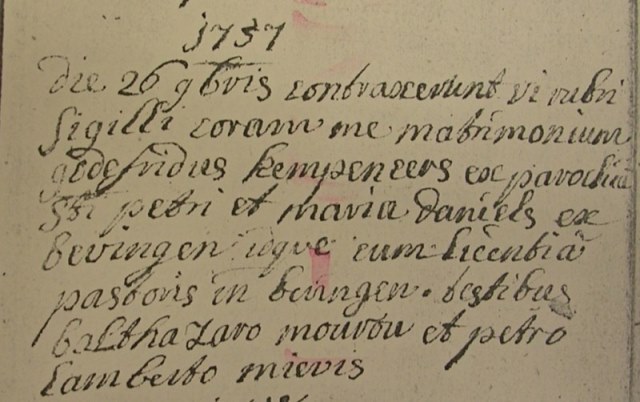 1757
Die 26 9bris contraxerunt vi rubri
sigilli coram me matrimonium
godefridus kempeneers ex parochia
Sti petri et maria daniels ex
bevingen idque cum licentiâ
pastoris in bevingen. testibus
balthazaro mourou et petro
lamberto mievis